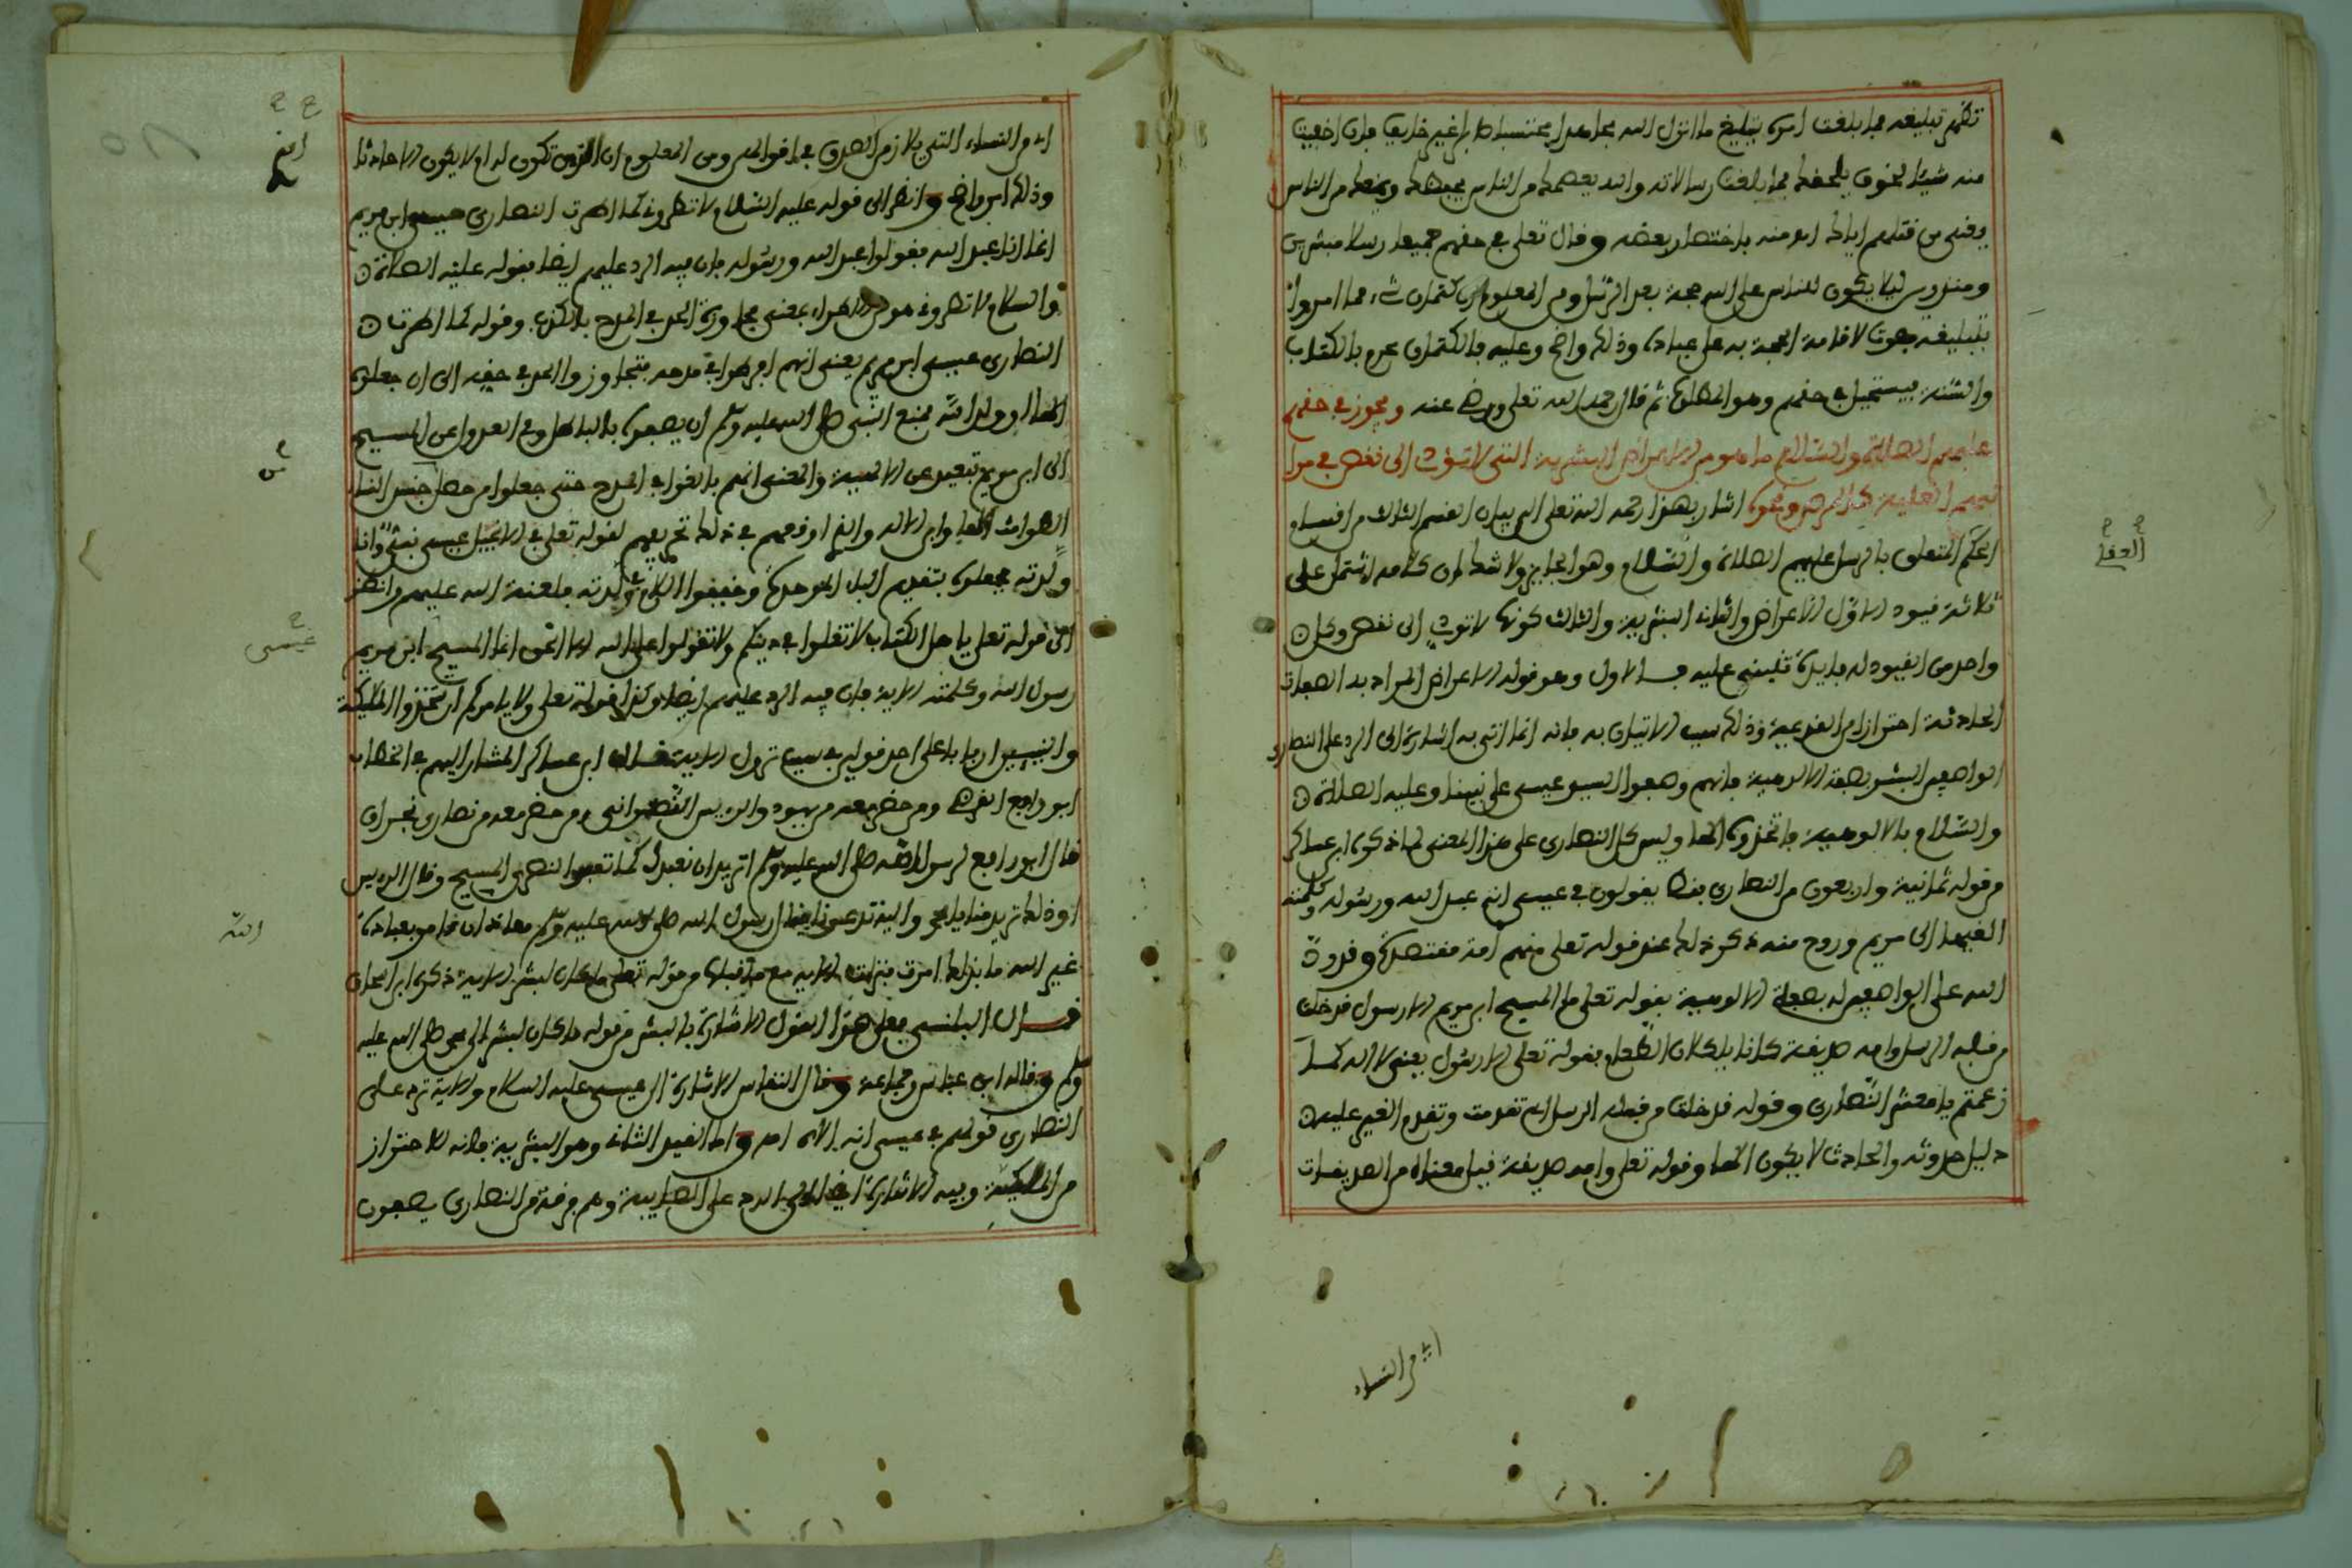 تظهر تبليغه فما بلغت امره بتبليغ ما انزل الله مجاهدا محتسبا صابرا غير خايف فان اخفيت
منه شيئا لخوف يلحقك فما بلغت رسالاته والله يعصمك من الناس يحفظك ويمنعك من الناس
من قتلهم اياك انتهى منه باختصار بعضه وقال تعلى في حقهم جميعا رسلا مبشرين
ومنذرين ليلا يكون للناس على الله حجة بعد الرسل ومن المعلوم ان كتمان شيء مما امروا
بتبليغه مفوت لاقامة الحجة به على عباده وذلك واضح وعليه فالكتمان محرم بالكتاب
والسنة فيستحيل في حقهم وهو المطلوب ثم قال رحمه الله تعلى ورضي عنه ويجوز في حقهم
عليهم الصلاة والسلام ما هو من الاعراض البشرية التي لا تؤدي الى نقص في مرا
تبهم العلية كالمرض ونحوه اشار بهذا رحمه الله تعلى الى بيان القسم الثالث من اقسام
الحكم المتعلق بالرسل عليهم الصلاة والسلام وهو الجايز ولا شك ان كلامه اشتمل على
ثلاثة قيود الاول الاعراض والثاني البشرية والثالث كونها لا تودي الى نقص وكل
واحد من القيود له فايدة تنبني عليه فالاول وهو قوله الاعراض المراد به الصفات
الحادثة احترازا من القديمة وذلك سبب الاتيان به فانه انما اتى به اشارة الى الرد على النصارى
الواصفين البشر بصفة الالوهية فانهم وصفوا السيد عيسى على نبينا وعليه الصلاة
والسلام بالالوهية فاتخذوه الها وليس كل النصارى على هذا المعنى لما ذكره ابن عساكر
من قوله ثمانية واربعون من النصارى يقولون في عيسى انه عبد الله ورسوله وكلمته
القيها الى مريم وروح منه ذكر ذلك عند قوله تعلى منهم امة مقتصدة وقد رد
الله على الواصفين له بصفة الالوهية بقوله تعلى ما المسيح ابن مريم الا رسول قد خلت
من قبله الرسل وامه صديقة كانا ياكلان الطعام بقوله تعلى الا رسول يعني لا اله كما
زعمتم يا معشر النصارى وقوله قد خلت من قبله الرسل اي تقدمت وتقدم الغير عليه
دليل حدوثه والحادث لا يكون الها وقوله تعلى وامه صديقة قيل معناه من الصديقات
اي من النساء
اي من النساء التي يلازمن الصدق في اقوالهن ومن المعلوم ان الذي تكون له ام لا يكون الا حادثا
وذلك امر واضح وانظر الى قوله عليه السلام لا تطروني كما اطرت النصارى عيسى ابن مريم
انما انا عبد الله فقولوا عبد الله ورسوله فان فيه الرد عليهم ايضا بقوله عليه الصلاة
والسلام لا تطروني هو من الاطراء بمعنى مجاوزة الحد في المدح بالكذب وقوله كما اطرت
النصارى عيسى ابن مريم يعني انهم افرطوا في مدحه فتجاوزوا الحد في حقه الى ان جعلوه
الها او ولدا لله فمنع النبي صلى الله عليه وسلم ان يصفوه بالباطل وفي العدول عن المسيح
الى ابن مريم تبعيد عن الالهية والمعنى انهم بالغوا في المدح حتى جعلوا من حصل جنس النساء
الطوامث الها وابن الاله والذي اوقعهم في ذلك تحريفهم لقوله تعلى في الانجيل عيسى نبيي وانا
ولدته فجعلوه بتقديم الباء الموحدة وخففوا اللام في ولدته فلعنة الله عليهم وانظر
الى قوله تعلى يا اهل الكتاب لا تغلوا في دينكم ولا تقولوا على الله الا الحق انما المسيح ابن مريم
رسول الله وكلمته الاية فان فيه الرد عليهم ايضا وكذا قوله تعلى ولا يامركم ان تتخذوا المليكة
والنبيين اربابا على احد قولين في سبب نزول الاية فقال ابن عساكر المشار اليهم في الخطاب
ابو رافع القرظي ومن حضر معه من يهود والريس النصراني ومن حضر معه من نصارى نجران
قال ابو رافع لرسول الله صلى الله عليه وسلم اتريد ان نعبدك كما تعبد النصارى المسيح وقال الريس
او ذلك تريد منا يا محمد واليه تدعونا فقال رسول الله صلى الله عليه وسلم معاذ الله ان نامر بعبادة
غير الله ما بذلك امرت فنزلت الاية مع ما قبلها من قوله تعلى ما كان لبشر الاية ذكره ابن اسحاق
قال البلنسي فعلى هذا القول الاشارة بالبشر من قوله ما كان لبشر الى محمد صلى الله عليه
وسلم وقاله ابن عباس وجماعة وقال النقاش الاشارة الى عيسى عليه السلام والاية ترد على
النصارى قولهم في عيسى انه الاه اهـ واما القيد الثاني وهو البشرية فانه للاحتراز
من الملكية وفيه الاشارة ايضا الى الرد على الصابية وهم فرقة من النصارى يصفون
العقلي
عيسى
الله